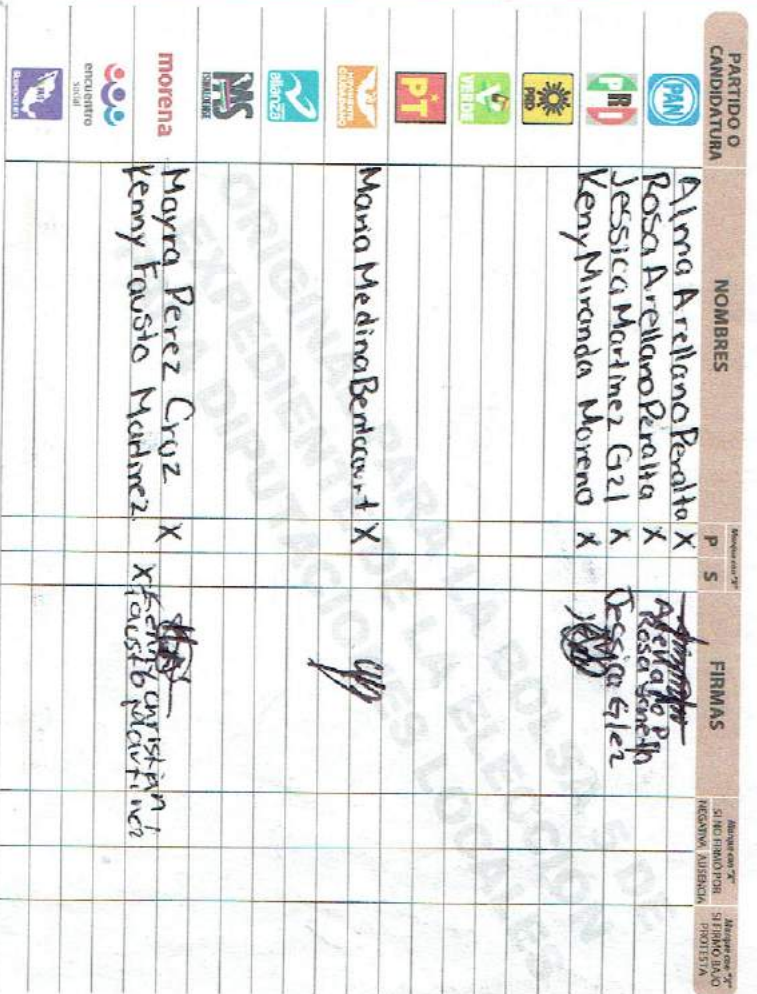 PARTIDO O
CANDIDATURA
NOMBRES
Marque con "X"
P S
FIRMAS
Marque con "X"
SI NO FIRMÓ POR
NEGATIVA AUSENCIA
Marque con "X"
SI FIRMÓ BAJO
PROTESTA
PAN
Alma Arellano Peralta X
Rosa Arellano Peralta X
Arellano P
Rosa Yaneth
PRI
Jessica Martinez Gzl X Jessica Glez
Keny Miranda Moreno X
PRD
VERDE
PT
MOVIMIENTO
CIUDADANO
Maria Medina Bentacourt X
alianza
PAS
morena
Mayra Perez Cruz X
Kenny Fausto Martinez X Kenny Christian
Fausto Martinez
encuentro
social
ORIGINAL PARA LA BOLSA DE
EXPEDIENTE DE LA ELECCIÓN
PARA DIPUTACIONES LOCALES